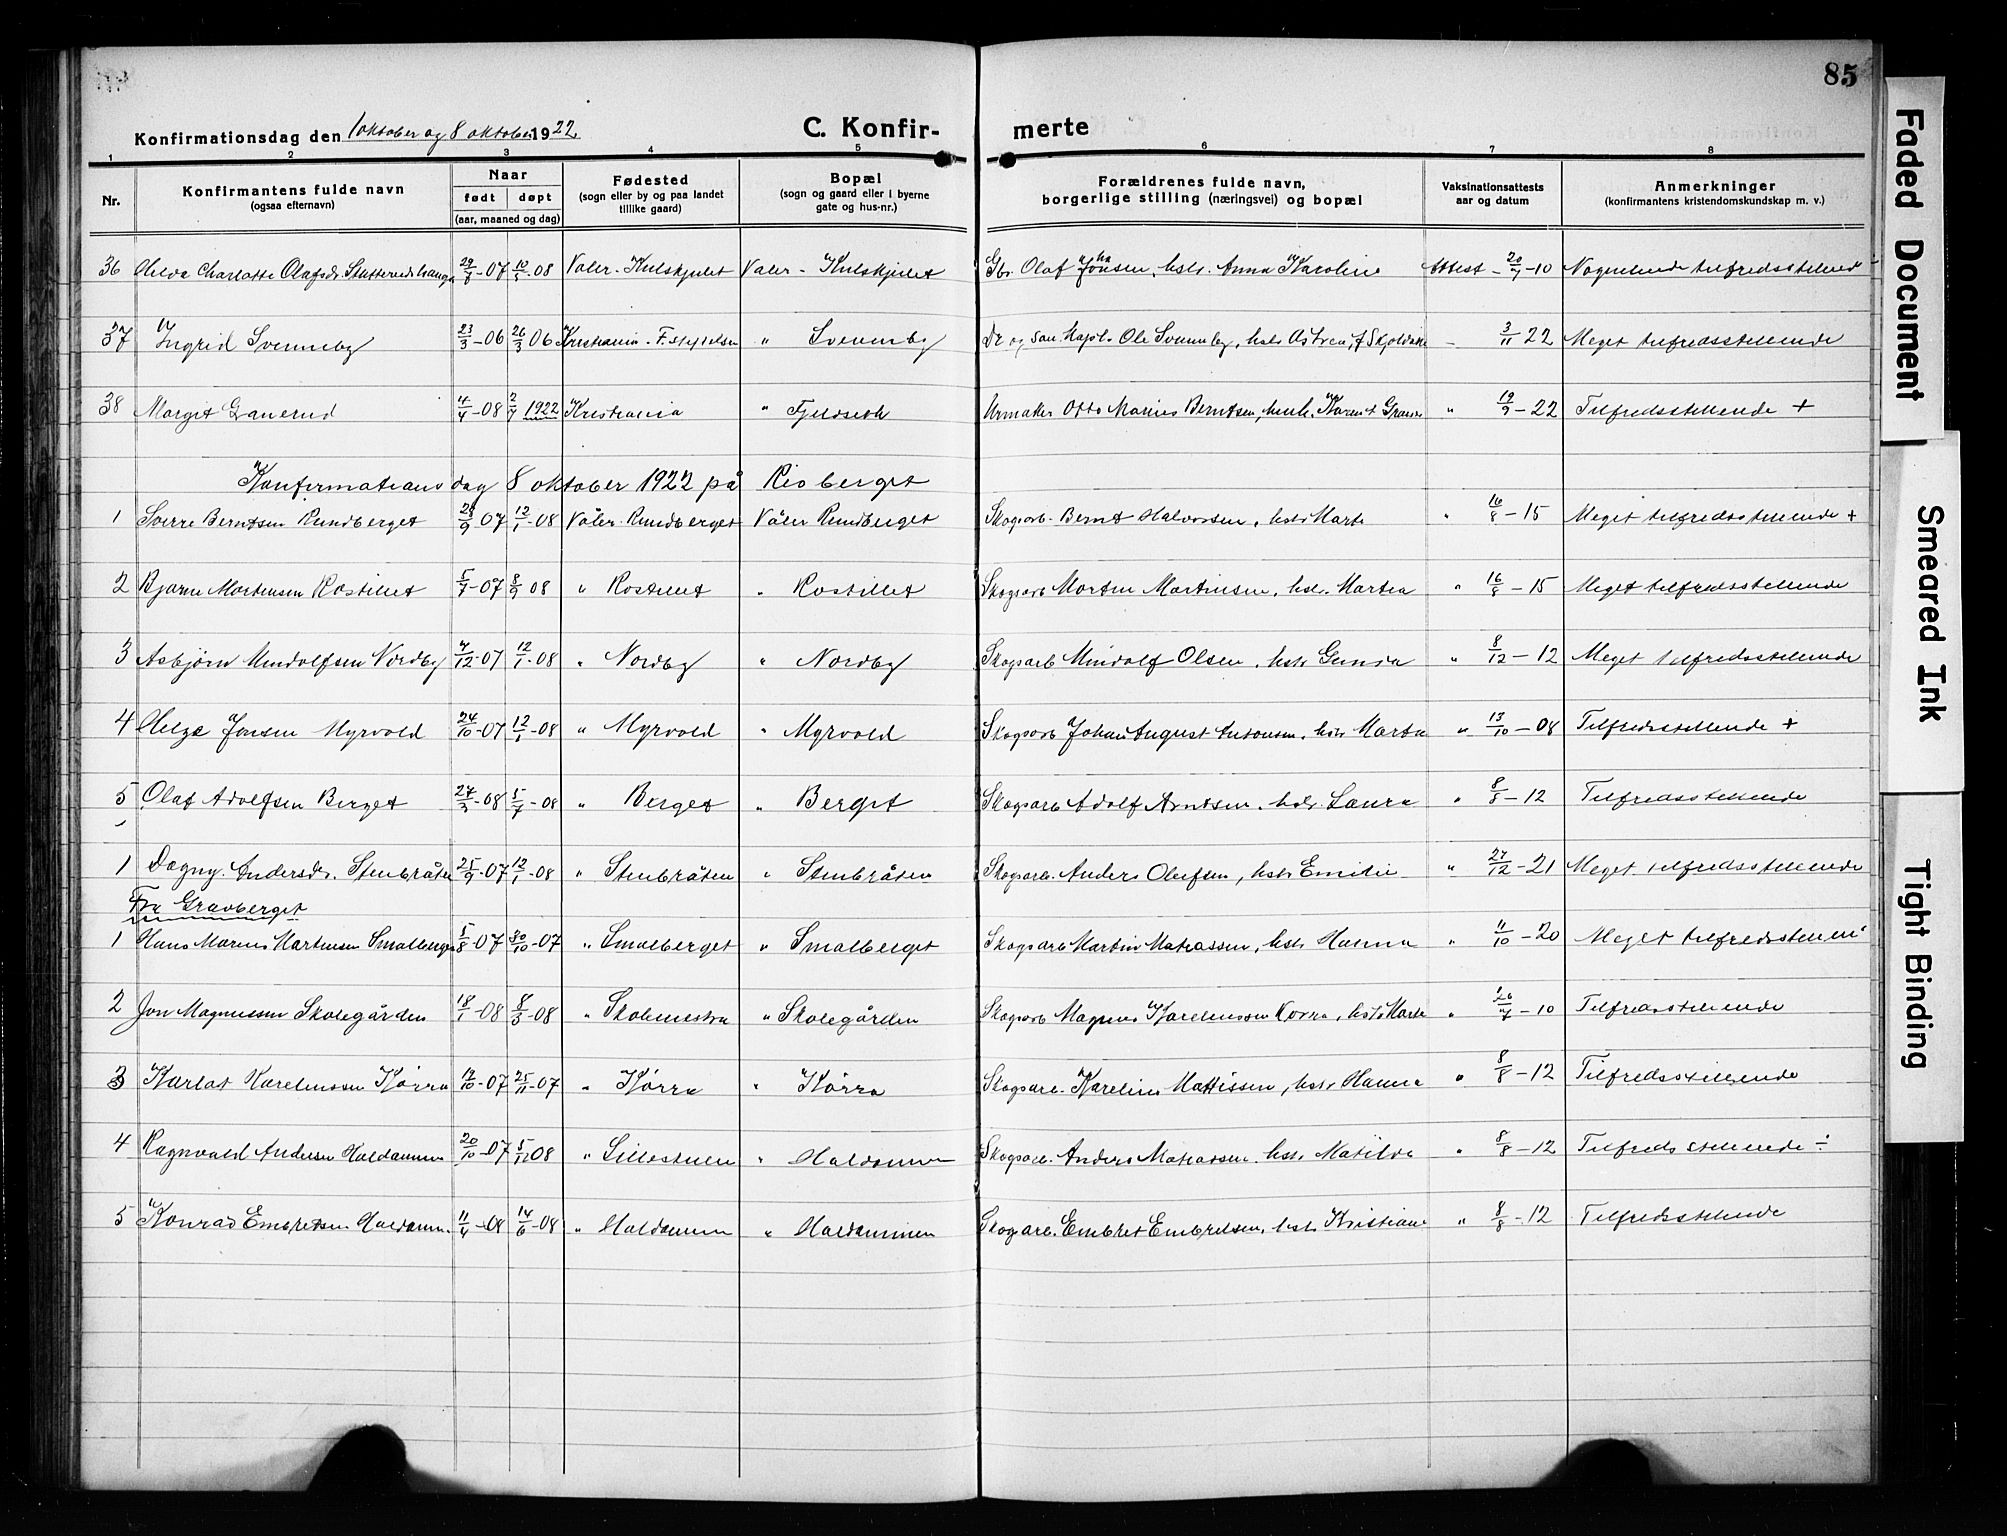 85
Konfirmationsdag den 1 oktober og 8 oktober 1922. C. Konfir- merte
1 2 3 4 5 6 7 8
Nr. Konfirmantens fulde navn (ogsaa efternavn) Naar født døpt (aar, maaned og dag) Fødested (sogn eller by og paa landet tillike gaard) Bopæl (sogn og gaard eller i byerne gate og hus-nr.) Forældrenes fulde navn, borgerlige stilling (næringsvei) og bopæl Vaksinationsattests aar og datum Anmerkninger (konfirmantens kristendomskundskap m. v.)
36 Charlotte Olafsdr. 29/8-07 10/5-08 Valer - Kulskjulet Valer - Kulskjulet Gbr. Olaf Johnsen, hstr. Anna Karoline Attest - 20/7-10
37 Ingrid Svenneby 23/3-06 26/3 06 Kristiania - F. " Svenneby Dr og Ole Svenneby, hstr. - 3/11 22 Meget tilfredsstillende
38 Margit Granerud 4/4-08 2/7 1922 Kristiania " Urmaker Otto Marius Berntsen, " 19/9-22 Tilfredsstillende +
Konfirmationsdag 8 oktober 1922 på Risberget
1 Sverre Berntsen Rundberget 28/9 07 12/1-08 Våler Rundberget Våler Rundberget Skogsarb. Bernt Halvorsen, hstr Marte " 16/8-15 Meget tilfredsstillende +
2 Bjarne Mortensen Rostillet 5/7-07 8/9 08 " Rostillet " Rostillet Skogsarb Morten Martinsen, hstr. Martea " 16/8-15 Meget tilfredsstillende
3 Asbjørn Mindolfsen Nordby 4/12-07 12/1-08 " Nordby " Nordby Skogsarb Mindolf Olsen, hstr " 8/12-12 Meget tilfredsstillende
4 Helge Jonsen Myrvold 24/10-07 12/1-08 " Myrvold " Myrvold Skogsarb Johan August Antonsen, hstr Martea " 13/10-08 Tilfredsstillende +
5 Olaf Adolfsen Berget 27/3-08 5/7-08 " Berget " Berget Skogsarb Adolf Arntsen, hstr. Laura " 8/8-12 Tilfredsstillende
1 Dagny Andersdr. Stenbråten 25/9-07 12/1-08 " Stenbråten " Stenbråten Skogsarb. Anders Olufsen, hstr Emilie " 27/12-21 Meget tilfredsstillende
Fra Gravberget
1 Hans Marius Martinsen Smalberget 5/8-07 30/10-07 " Smalberget " Smalberget Skogsarb Martin Matiassen, hstr Hanna " 11/10-20 Meget tilfredsstillende
2 Jon Magnussen Skolegården 18/1-08 8/3-08 " " Skolegården Skogsarb Magnus Karelinssen Kørra, hstr Marte " 26/7-10 Tilfredsstillende
3 Karlot Karelinssen Kørra 12/10-07 25/11-07 " Kørra " Kørra Skogsarb. Karelius Mattissen, hstr Hanna " 8/8-12 Tilfredsstillende
4 Ragnvald Andersen Haldammen 20/10-07 5/12 08 " Lillestuen " Haldammen Skogsarb. Anders Matiassen hstr Matilde " 8/8-12 Tilfredsstillende ÷
5 Konrad Embretsen Haldammen 11/4-08 14/6-08 " Haldammen " Haldammen Skogarb. Embret Embretsen, hstr Kristiane " 8/8-12 Tilfredsstillende
Faded Document
Smeared Ink
Tight Binding